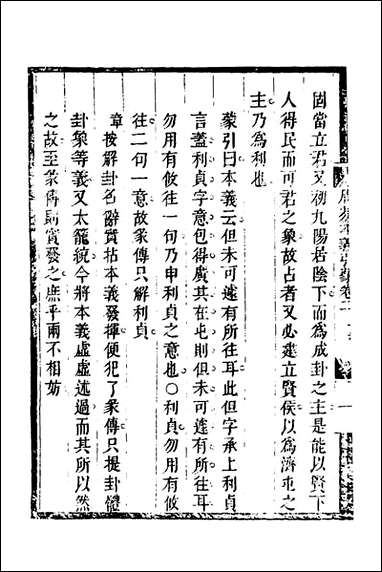 固當立君又初九陽居陰下而為成卦之主是能以賢下
人得民而可君之象故占者又必建立賢侯以為濟屯之
主乃為利也
蒙引曰本義云但未可遽有所往耳此但字承上利貞
言蓋利貞字意包得廣其在屯則但未可遽有所往耳
勿用有攸往一句乃申利貞之意也○利貞勿用有攸
往二句一意故彖傳只解利貞
章按解卦名辭實拈本義發揮便犯了彖傳只提卦體
卦象等義又太籠統今將本義虛虛述過而其所以然
之故至彖傳則實發之庶乎兩不相妨